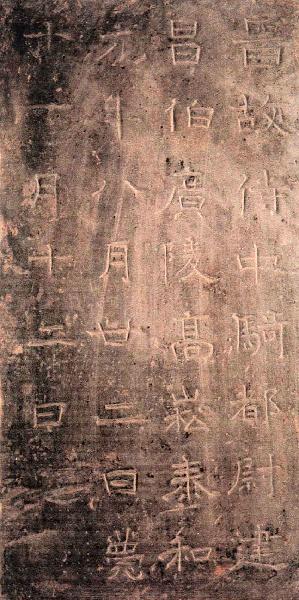 晉故侍中騎都尉建
昌伯廣陵高崧泰和
元年八月廿二日薨
十一月十二日